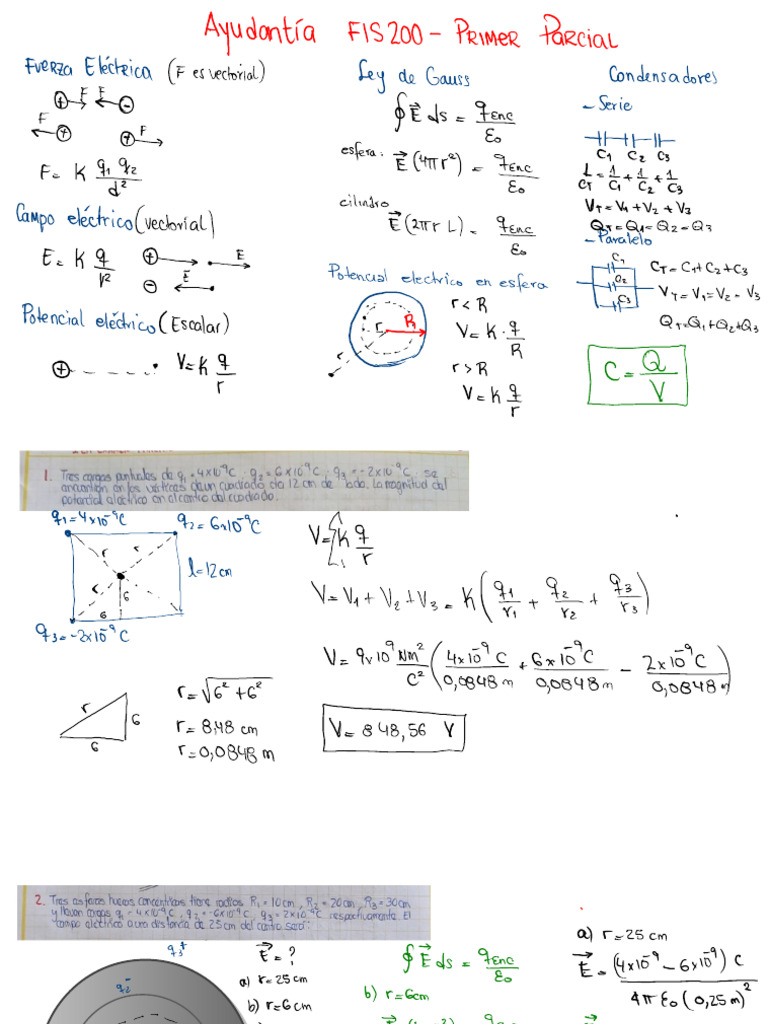 Ayudantía FIS200 - PRIMER PARCIAL
Fuerza Eléctrica (F es vectorial)
F F
+ -
F F
+ +
F = K q1 q2 / d²
Campo eléctrico (vectorial)
E = K q / r²
+ E
- E
Potencial eléctrico (Escalar)
+ V = K q / r
Ley de Gauss
∮ E⃗ ds = qENC / ε0
esfera: E⃗ (4πr²) = qENC / ε0
cilindro E⃗ (2πr L) = qENC / ε0
Potencial electrico en esfera
r R1
r
r < R
V = K · q / R
r > R
V = K q / r
Condensadores
- Serie
C1 C2 C3
1/CT = 1/C1 + 1/C2 + 1/C3
VT = V1 + V2 + V3
QT = Q1 = Q2 = Q3
- Paralelo
C1
C3
CT = C1 + C2 + C3
VT = V1 = V2 = V3
QT = Q1 + Q2 + Q3
C = Q / V
1. Tres cargas puntuales de q1 = 4x10⁻⁹C, q2 = 6x10⁻⁹C, q3 = -2x10⁻⁹C, se
encuentran en los vértices de un cuadrado de 12 cm de lado. La magnitud del
potencial electrico en el centro del cuadrado.
q1 = 4x10⁻⁹C q2 = 6x10⁻⁹C
r r
r 6
6
l = 12 cm
q3 = -2x10⁻⁹C
r 6
6
r = √6² + 6²
r = 8,48 cm
r = 0,0848 m
V = Σ K q / r
V = V1 + V2 + V3 = K (q1/r1 + q2/r2 + q3/r3)
V = 9x10⁹ Nm²/C² (4x10⁻⁹C/0,0848 m + 6x10⁻⁹C/0,0848 m - 2x10⁻⁹C/0,0848 m)
V = 848,56 V
2. Tres esferas huecas concentricas tiene radios R1 = 10cm, R2 = 20cm, R3 = 30cm
y llevan cargas q1 = 4x10⁻⁹C, q2 = -6x10⁻⁹C, q3 = 2x10⁻⁹C respectivamente. El
campo electrico a una distancia de 25 cm del centro será:
q3⁺
q2⁻
E⃗ = ?
a) r = 25 cm
b) r = 6 cm
∮ E⃗ ds = qENC / ε0
b) r = 6cm
a) r = 25 cm
E⃗ = (4x10⁻⁹ - 6x10⁻⁹) C / 4π ε0 (0,25 m)²